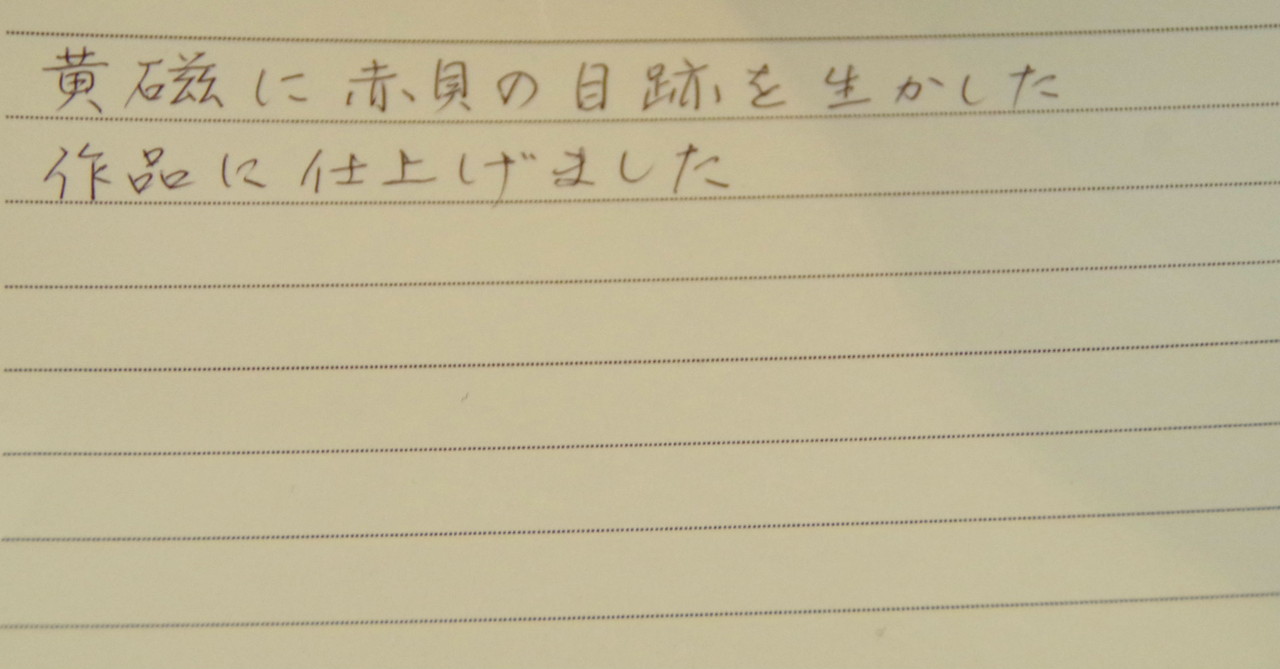 黄磁に赤貝の目跡を生かした
作品に仕上げました